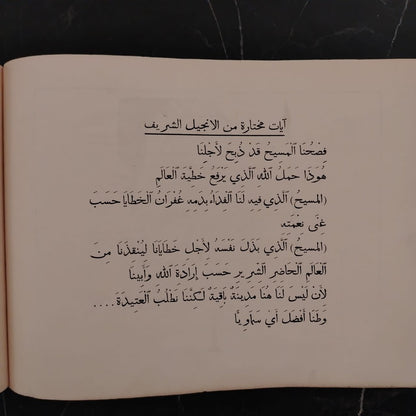 آيات مختارة من الانجيل الشريف
فِصْحُنَا ٱلْمَسِيحُ قَدْ ذُبِحَ لِأَجْلِنَا
هُوَذَا حَمَلُ ٱللهِ ٱلَّذِي يَرْفَعُ خَطِيَّةَ ٱلْعَالَمِ
(المسيحُ) ٱلَّذِي فِيهِ لَنَا ٱلْفِدَاءُ بِدَمِهِ غُفْرَانُ ٱلْخَطَايَا حَسَبَ
غِنَى نِعْمَتِهِ
(المسيحُ) ٱلَّذِي بَذَلَ نَفْسَهُ لِأَجْلِ خَطَايَانَا لِيُنْقِذَنَا مِنَ
ٱلْعَالَمِ ٱلْحَاضِرِ ٱلشِّرِّيرِ حَسَبَ إِرَادَةِ ٱللهِ وَأَبِينَا
لِأَنْ لَيْسَ لَنَا هُنَا مَدِينَةٌ بَاقِيَةٌ لٰكِنَّنَا نَطْلُبُ ٱلْعَتِيدَةَ ....
وَطَنًا أَفْضَلَ أَيْ سَمَاوِيًّا